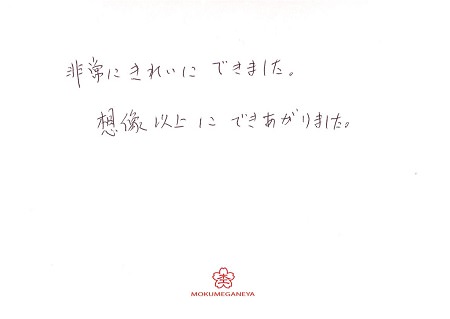 非常にきれいにできました。
想像以上にできあがりました。
MOKUMEGANEYA